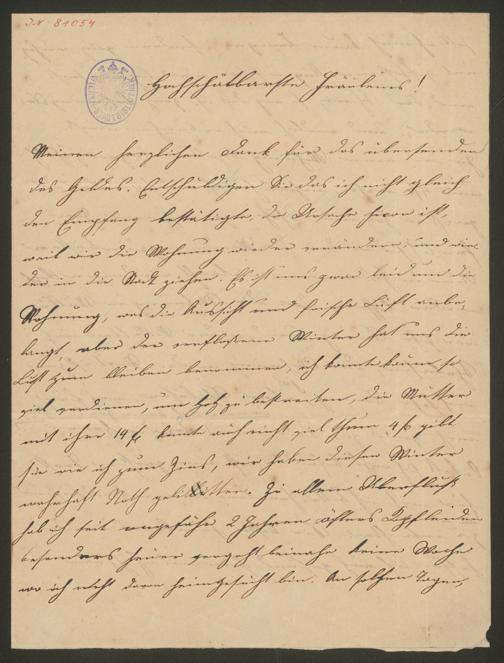 I.N. 81054
Hochschätbarste Fräuleins!
Meinen herzlichen Dank für das übersenden
des Geldes. Entschuldigen Sie das ich nicht gleich
den Empfang bestätigte, die Ursache hievon ist,
weil wir die Wohnung wieder verändern, und wie-
der in die Stadt ziehen. Es ist uns zwar leid um die
Wohnung, was die Aussicht und frische Luft anbe-
langt aber der verflossene Winter hat uns die
Lust zum bleiben benommen, ich konnte kaum so
viel verdienen, um Holz zu bestreiten, die Mutter
mit ihrer 14 f konnte auch nicht viel thun 4 f gibt
sie wie ich zum Zins, wir haben diesen Winter
wahrhaft Noth gelitten. Zu allem Überfluß
hab ich seit ungefähr 2 Jahren öfters Kopfleiden
besonders heuer vergeht beinahe keine Woche
wo ich nicht davon heimgesucht bin. An solchen Tagen,